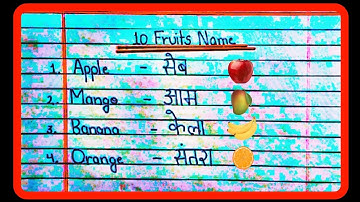 10 Fruits Name
1. Apple - सेब
2. Mango - आम
3. Banana - केला
4. Orange - संतरा